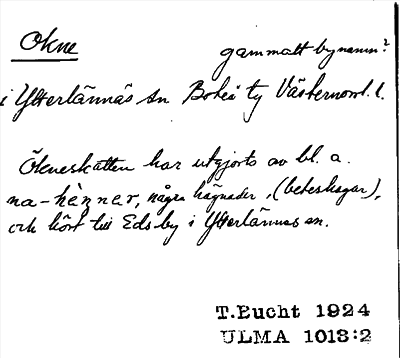 Ökne
gammalt bynamn?
i Ytterlännäs sn Boteå tg Västernorrl. l.
Ökneskatten har utgjorts av bl. a.
na-hènner, några hägnader, (beteshagar),
och hört till Edsby i Ytterlännäs sn.
T.Bucht 1924
ULMA 1013:2